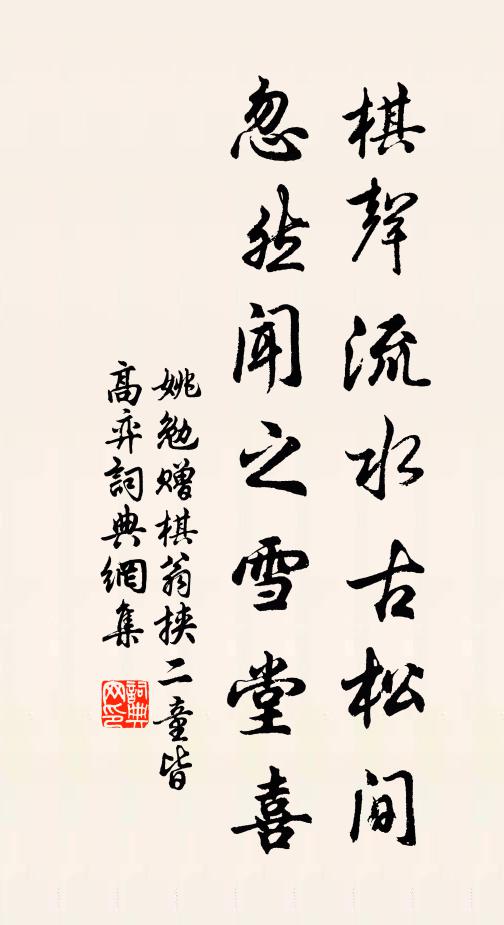 棋聲流水古松間
忽然聞之雪堂喜
姚勉贈棋翁挾二童皆
高弈詞典網集
詞典网印